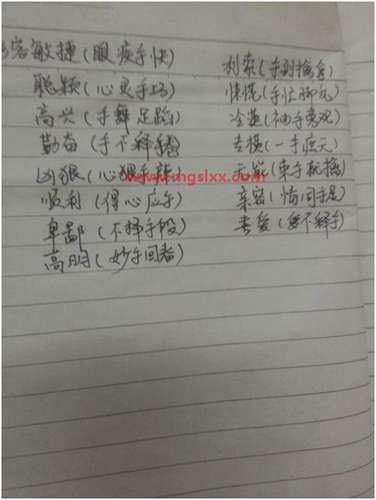 容敏捷(眼疾手快)
聪颖(心灵手巧)
高兴(手舞足蹈)
勤奋(手不释卷)
凶狠(心狠手辣)
顺利(得心应手)
卑鄙(不择手段)
高明(妙手回春)
利索(手到擒来)
慌慌(手忙脚乱)
冷漠(袖手旁观)
专横(一手遮天)
无能(束手就擒)
亲密(情同手足)
喜爱(爱不释手)
www.mgslxx.com